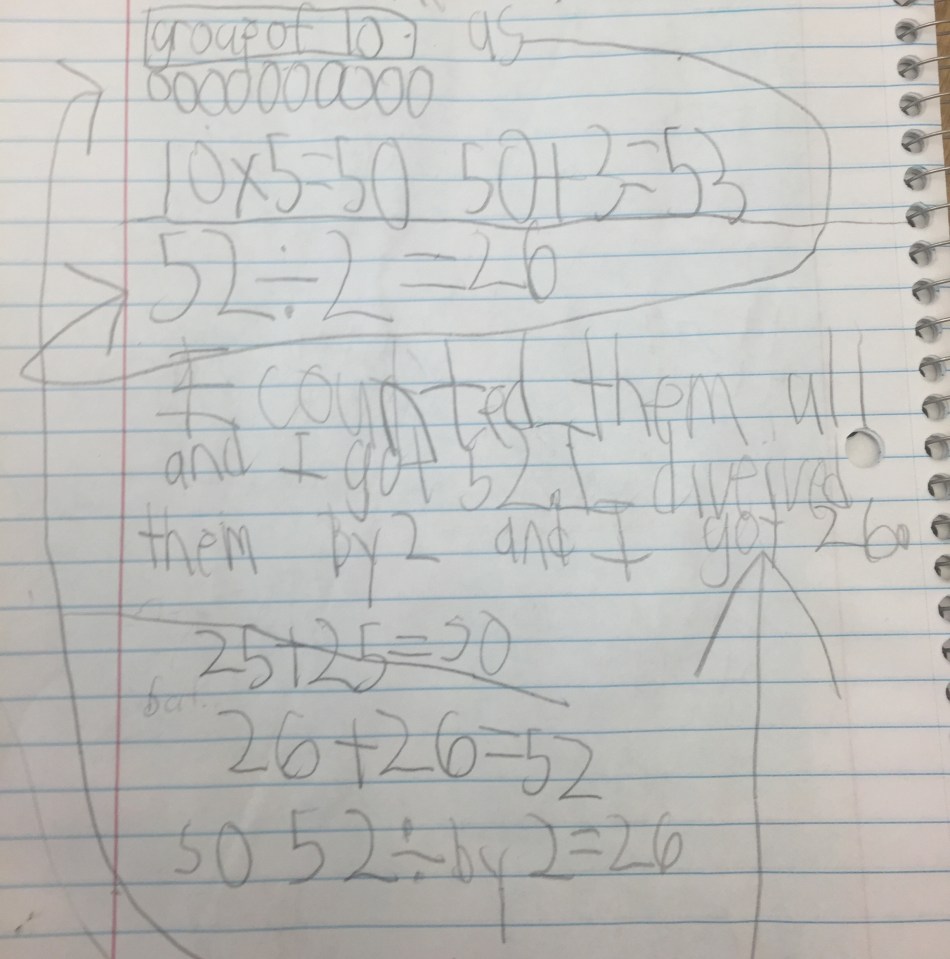 group of 10. as
0000000000
10x5=50 50+3=53
52÷2=26
I counted them all
and I got 52. I diveived
them by 2 and I got 26.
25+25=50
but
26+26=52
so 52÷by 2=26